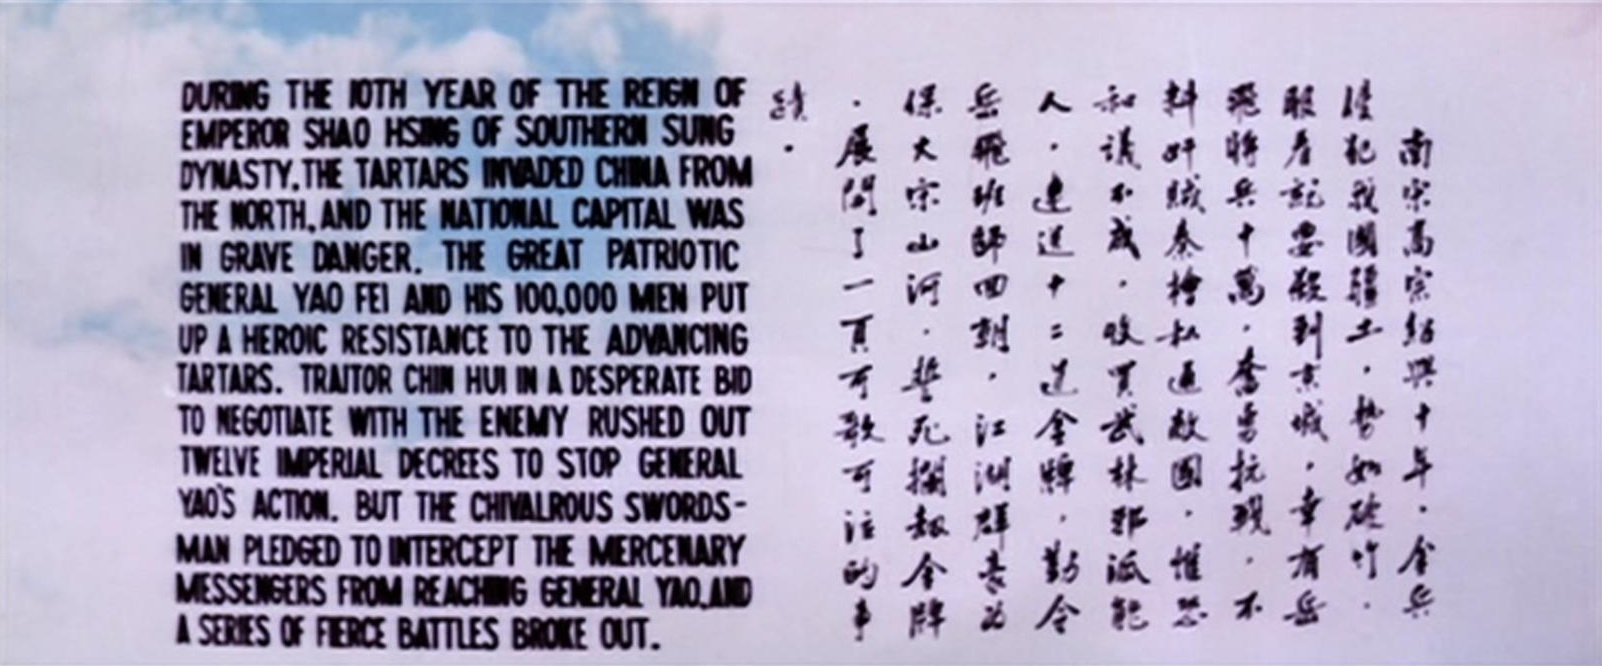 DURING THE 10TH YEAR OF THE REIGN OF
EMPEROR SHAO HSING OF SOUTHERN SUNG
DYNASTY, THE TARTARS INVADED CHINA FROM
THE NORTH, AND THE NATIONAL CAPITAL WAS
IN GRAVE DANGER. THE GREAT PATRIOTIC
GENERAL YAO FEI AND HIS 100,000 MEN PUT
UP A HEROIC RESISTANCE TO THE ADVANCING
TARTARS. TRAITOR CHIN HUI IN A DESPERATE BID
TO NEGOTIATE WITH THE ENEMY RUSHED OUT
TWELVE IMPERIAL DECREES TO STOP GENERAL
YAO'S ACTION. BUT THE CHIVALROUS SWORDS-
MAN PLEDGED TO INTERCEPT THE MERCENARY
MESSENGERS FROM REACHING GENERAL YAO, AND
A SERIES OF FIERCE BATTLES BROKE OUT.
南宋高宗紹興十年·金兵
侵犯我國疆土·勢如破竹·
眼看就要殺到京城·幸有岳
飛將兵十萬·奮勇抗戰·不
料奸賊秦檜私通敵國·惟恐
和議不成·收買武林邪派能
人·連送十二道金牌·勒令
岳飛班師回朝·江湖群豪為
保大宋山河·誓死攔劫金牌
·展開了一頁可歌可泣的事
蹟·